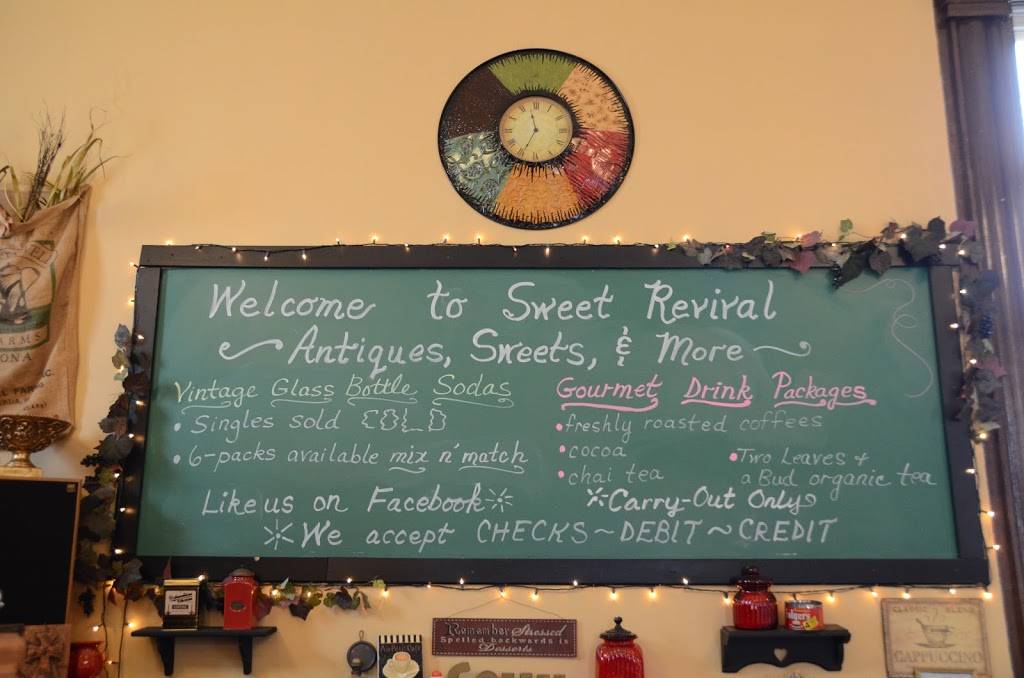 Welcome to Sweet Revival
Antiques, Sweets, & More
Vintage Glass Bottle Sodas
• Singles sold COLD
• 6-packs available mix n' match
Gourmet Drink Packages
• freshly roasted coffees
• cocoa
• chai tea
• Two Leaves +
a Bud organic tea
Like us on Facebook
Carry-Out Only
We accept CHECKS ~ DEBIT ~ CREDIT
ARMS
ONA
Remember Stressed
Spelled backwards is
Desserts
CLASSIC BLEND
CAPPUCCINO